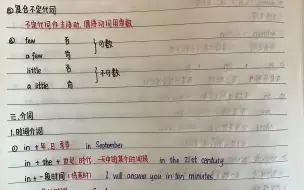 ⑤ 复合不定代词
不定代词作主语时, 谓语动词用单数
⑥ few 否 } 可数
a few 肯
little 否 } 不可数
a little 肯
三. 介词
1. 时间介词
① in + 年. 月. 季节 in September
in + the + 世纪. 时代 in the 21st century
in + 一段时间 (将来时) I will answer you in ten minutes